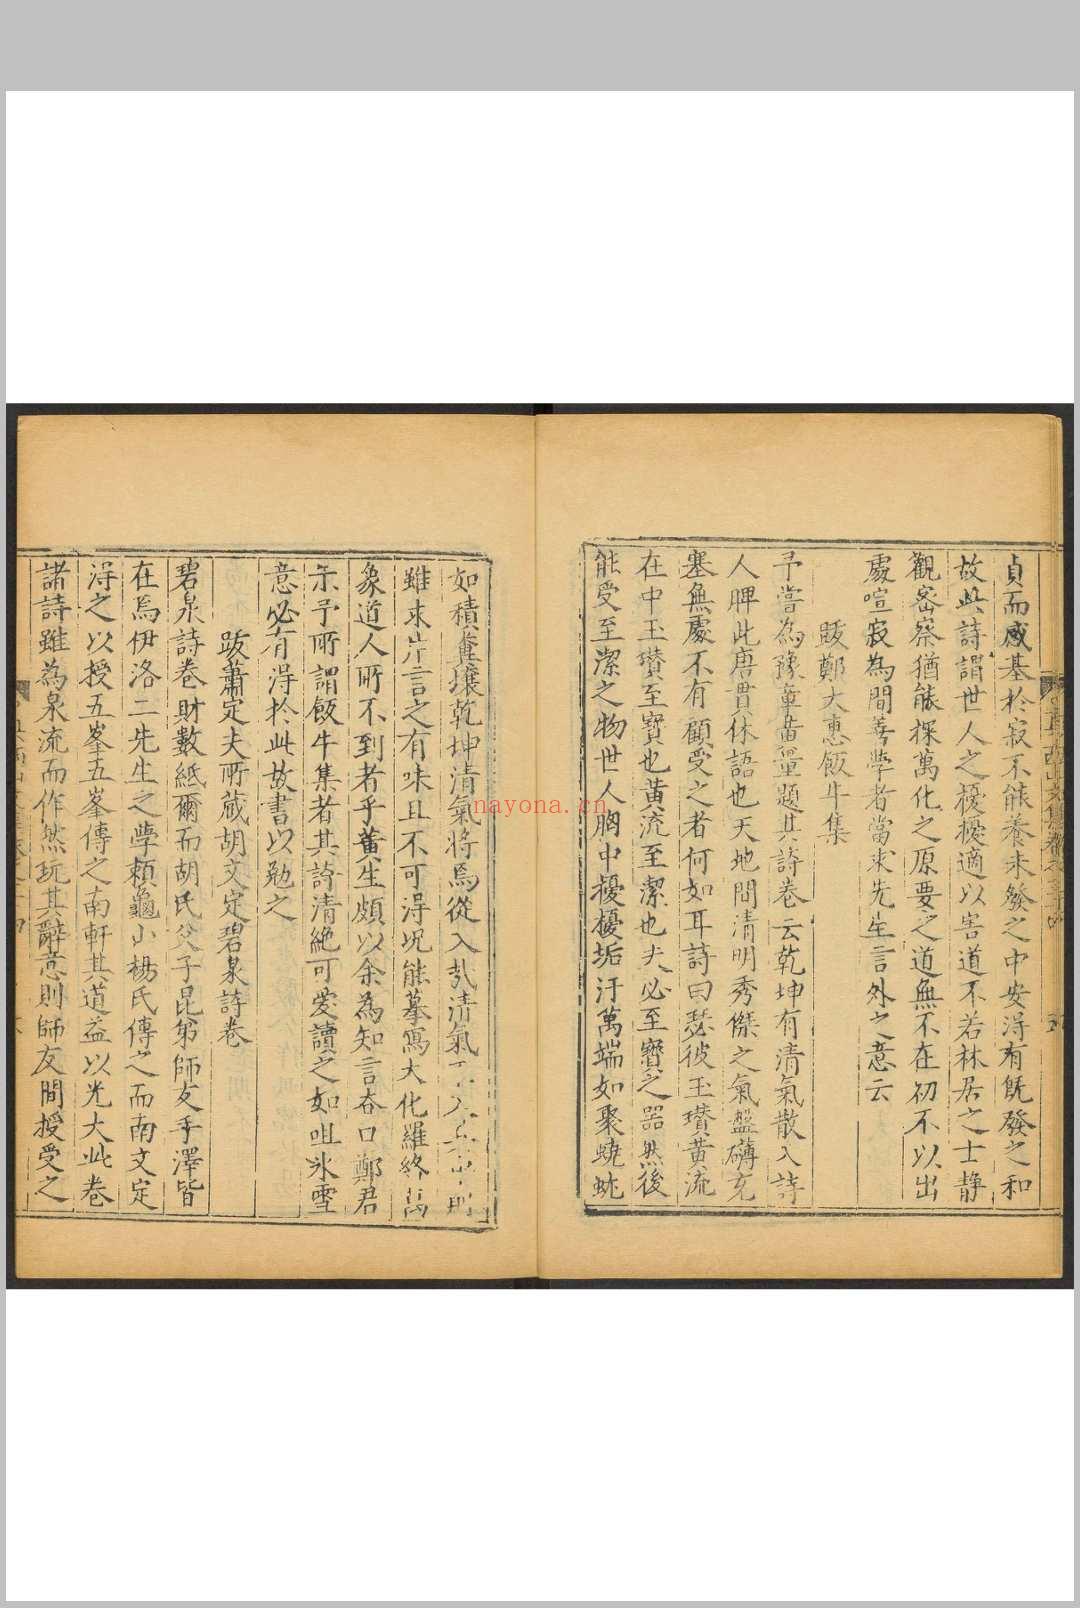 貞而感基於寂不能養未發之中安得有既發之和
故此詩謂世人之擾擾適以害道不若林居之士静
觀密察猶能探萬化之原要之道無不在初不以出
處喧寂為間善學者當求先生言外之意云
跋鄭大惠飯牛集
予嘗為豫章黄量題其詩卷云乾坤有清氣散入詩
人脾此唐貫休語也天地間清明秀傑之氣盤礴充
塞無處不有顧受之者何如耳詩曰瑟彼玉瓚黄流
在中玉瓚至寶也黄流至潔也夫必至寶之器然後
能受至潔之物世人胸中擾擾垢汙萬端如聚蟯蚘
如積糞壤乾坤清氣將焉從入㢤清氣
雖末𡵨言之有味且不可得况能摹寫大化羅終萬
象道人所不到者乎黄生頗以余為知言吞口鄭君
示予所謂飯牛集者其詩清絶可爱讀之如咀氷雪
意必有得於此故書以勉之
跋蕭定夫所蔵胡文定碧泉詩卷
碧泉詩卷財數紙爾而胡氏父子昆弟師友手澤皆
在焉伊洛二先生之學頼龜山楊氏傳之而南文定
得之以授五峯五峯傳之南軒其道益以光大此卷
諸詩雖為泉流而作然玩其辭意則師友間授受之
nayona.cn